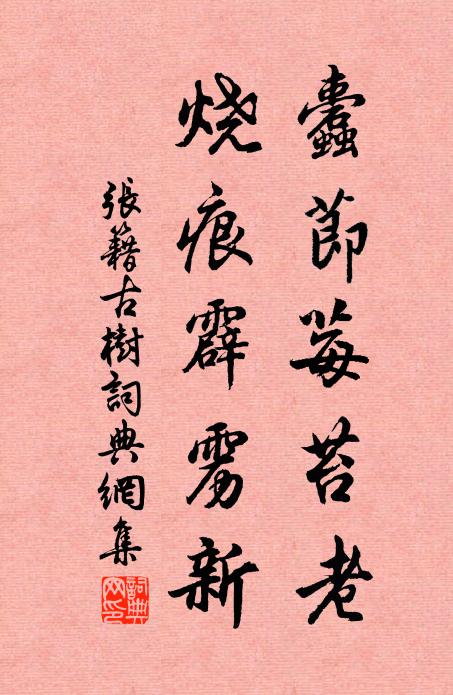 蠹莭莓苔老
烧痕霹雳新
張籍古樹詞典網集
詞典网印